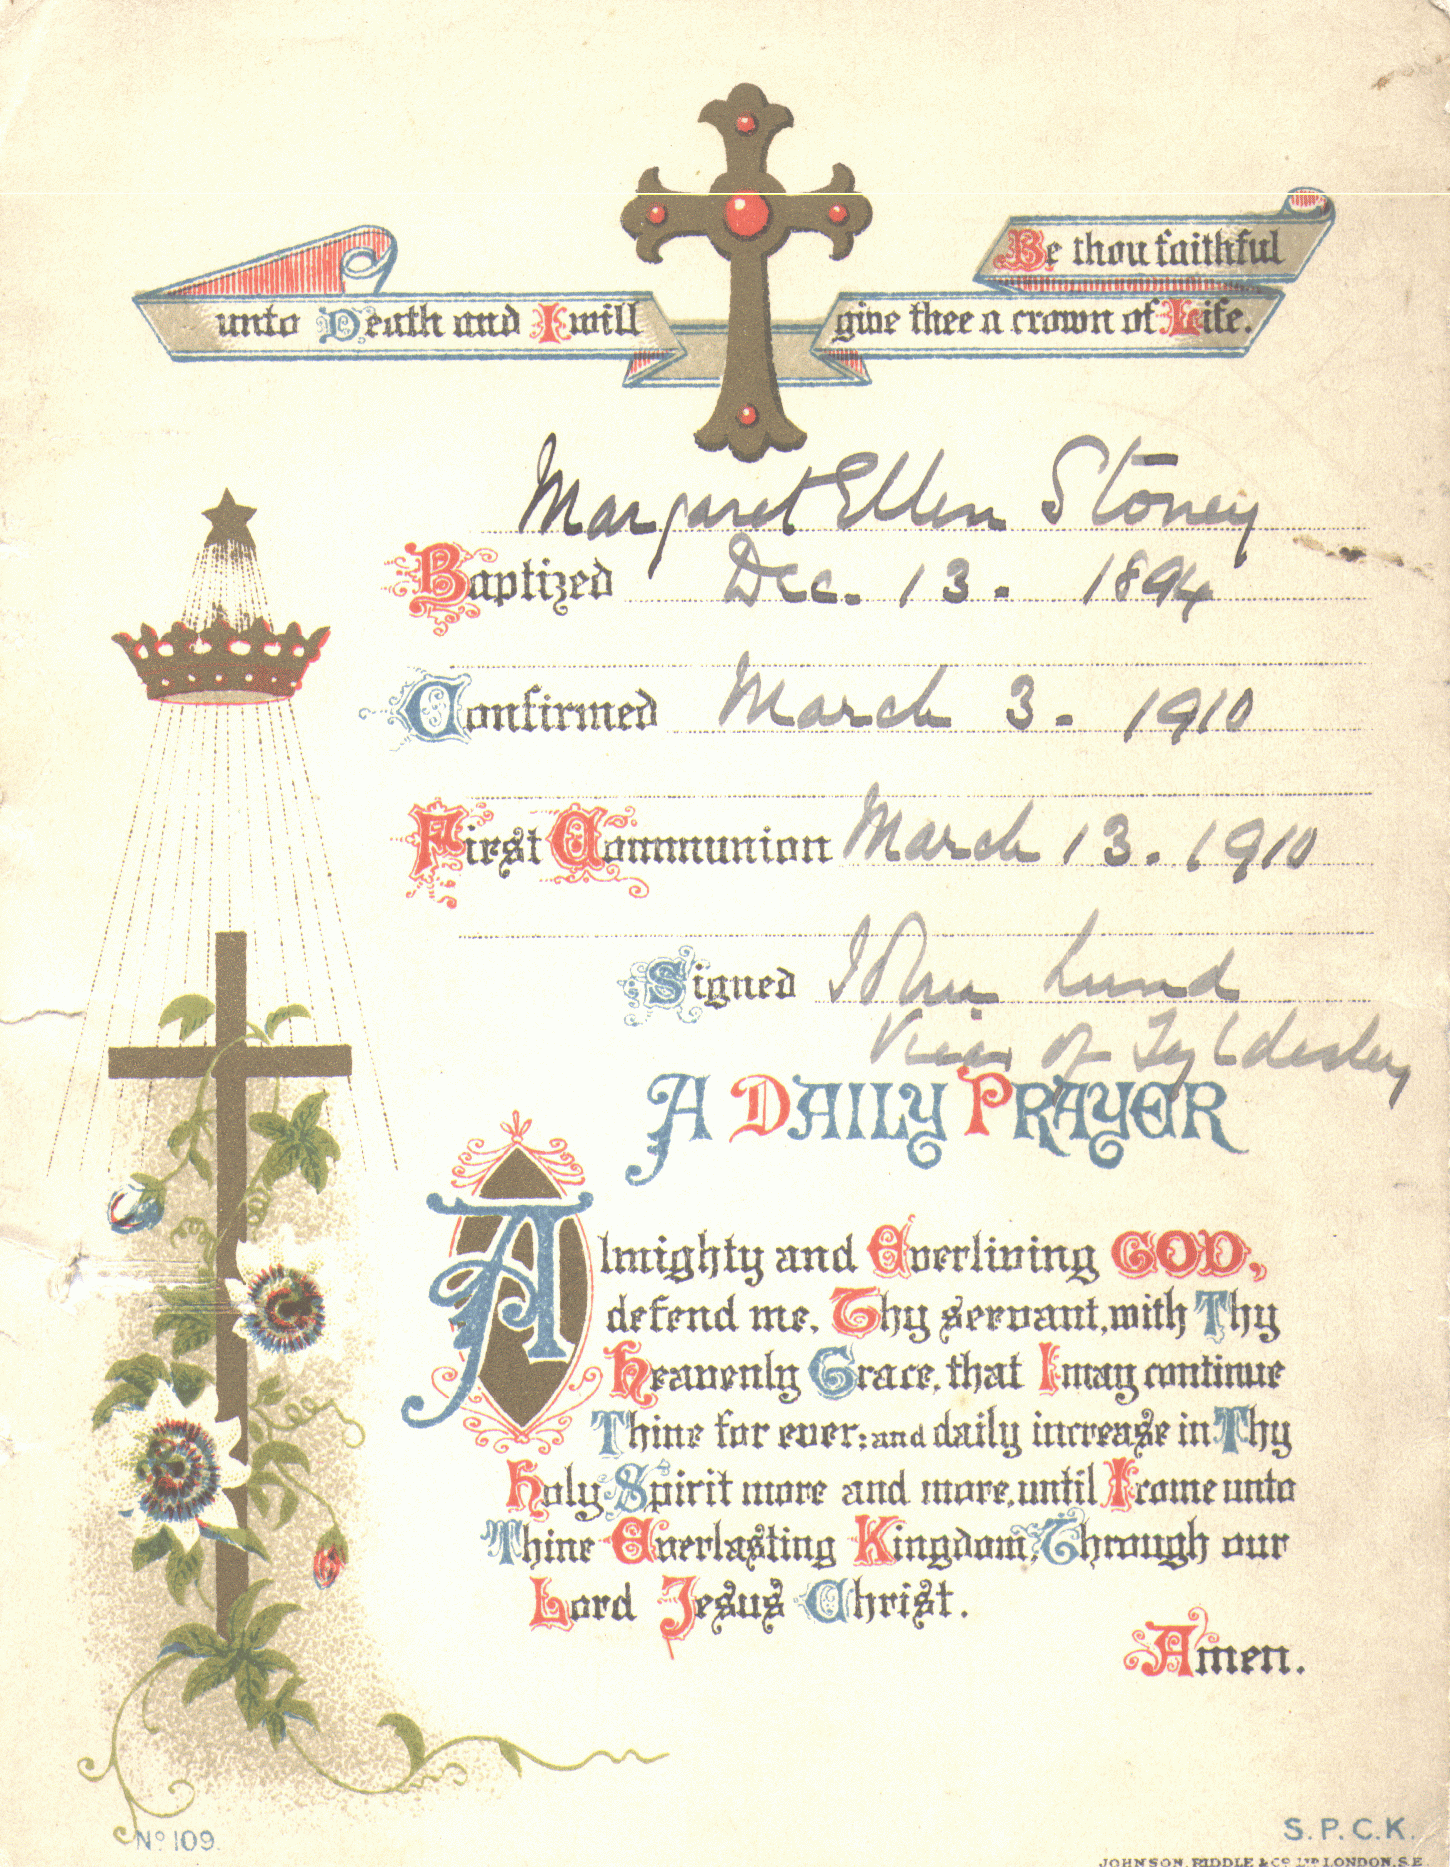 Be thou faithful
unto Death and I will give thee a crown of Life.
Margaret Ellen Stoney
Baptized Dec. 13. 1894
Confirmed March 3. 1910
First Communion March 13. 1910
Signed John Lund
Vicar of Tyldesley
A DAILY PRAYER
Almighty and Everliving GOD,
defend me, Thy servant, with Thy
Heavenly Grace, that I may continue
Thine for ever: and daily increase in Thy
Holy Spirit more and more, until I come unto
Thine Everlasting Kingdom, Through our
Lord Jesus Christ.
Amen.
No 109.
S.P.C.K.
JOHNSON, RIDDLE & CO LTD LONDON, S.E.